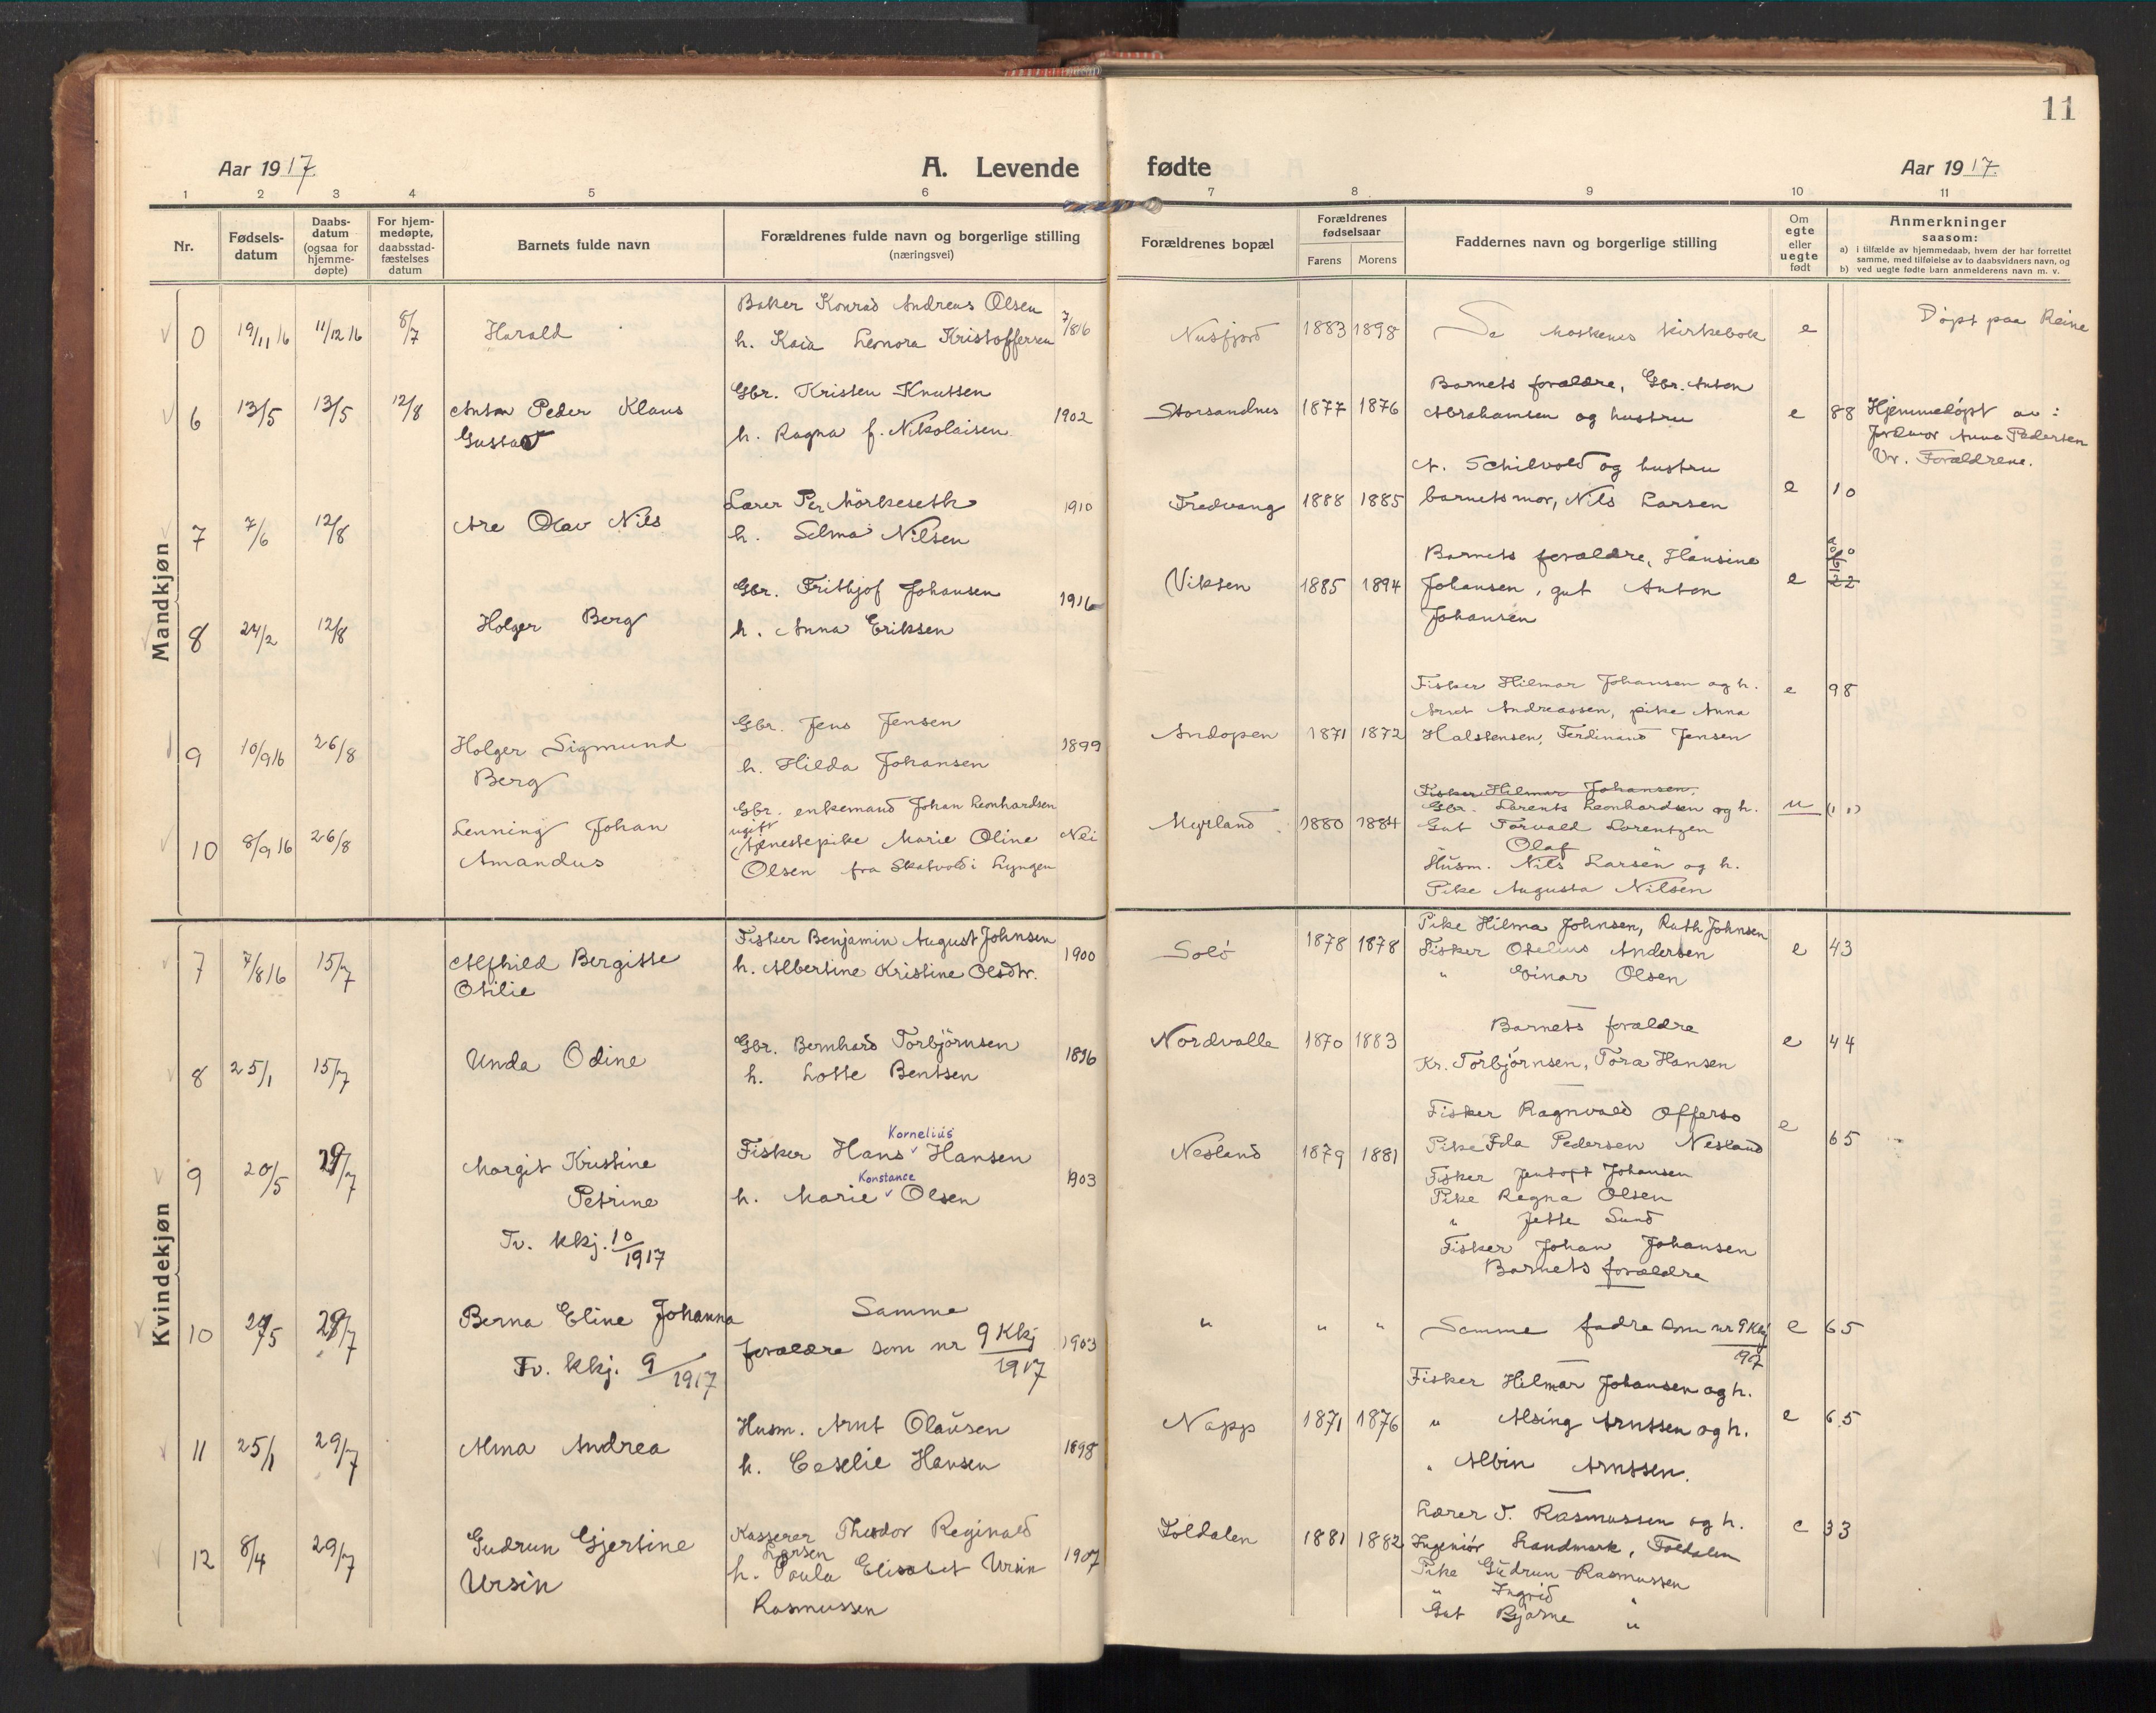 11
Aar 1917
A. Levende
fødte
Aar 1917
1 2 3 4 5 6 7 8 9 10 11
Nr.
Fødsels-
datum
Daabs-
datum
(ogsaa for
hjemme-
døpte)
For hjem-
medøpte,
daabsstad-
fæstelses
datum
Barnets fulde navn
Forældrenes fulde navn og borgerlige stilling
(næringsvei)
Forældrenes bopæl
Forældrenes
fødselsaar
Farens
Morens
Faddernes navn og borgerlige stilling
Om
egte
eller
uegte
født
Anmerkninger
saasom:
a) i tilfælde av hjemmedaab, hvem der har forrettet
samme, med tilføielse av to daabsvidners navn, og
b) ved uegte fødte barn anmelderens navn m. v.
Mandkjøn
0 19/11 16 11/12 16 8/7
Harald
Baker Konrad Andreas Olsen
h. Kaia Leonora Kristoffersen
7/8 16
Nusfjord 1883 1898
Se Moskenes kirkebok
e
Døpt paa Reine
6 13/5 13/5 12/8
Anton Peder Klaus
Gustav
Gbr. Kristen Knutsen
h. Ragna f. Nikolaisen
1902
Storsandnes 1877 1876
Barnets forældre, Gbr. Anton
Abrahamsen og hustru
e 88
Hjemmedøpt av:
Jordmor Anna Pedersen
Vv. Forældrene.
7 7/6 12/8
Are Olav Nils
Lærer Per Mörkeseth
h. Selma Nilsen
1910
Fredvang 1888 1885
A. Schilvold og hustru
barnets mor, Nils Larsen
e 10
8 24/2 12/8
Holger Berg
Gbr. Frithjof Johansen
h. Anna Eriksen
1916
Viksen 1885 1894
Barnets forældre, Hansine
Johansen, gut Anton
Johansen
e 22
9 10/9 16 26/8
Holger Sigmund
Berg
Gbr. Jens Jensen
h. Hilda Johansen
1899
Andopen 1871 1872
Fisker Hilmar Johansen og h.
Andreassen, pike Anna
Halstensen, Ferdinand Jensen
e 98
10 8/9 16 26/8
Lenning Johan
Amandus
Gbr. enkemand Johan Leonhardsen
ugift
tjenestepike Marie Oline
Olsen fra Skatvold i Lyngen
Nei
Myrland 1880 1884
Fisker Hilmar Johansen.
Gbr. Lorents Leonhardsen og h.
Gut Torvald Lorentzen
" Olaf "
Husm. Nils Larsen og h.
Pike Augusta Nilsen
u
Kvindekjøn
7 7/8 16 15/7
Alfhild Bergitte
Otilie
Fisker Benjamin August Johnsen
h. Albertine Kristine Olsdtr.
1900
Solö 1878 1878
Pike Hilma Johnsen, Ruth Johnsen
Fisker Otelius Andersen
" Einar Olsen
e 43
8 25/1 15/7
Unda Odine
Gbr. Bernhard Torbjörnsen
h. Lotte Bentsen
1896
Nordvalle 1870 1883
Barnets forældre
Kr. Torbjörnsen, Tora Hansen
e 44
9 20/5 29/7
Margit Kristine
Petrine
Tv. kkj. 10/1917
Kornelius
Fisker Hans Hansen
Konstance
h. Marie Olsen
1903
Nesland 1879 1881
Fisker Ragnvald Offersø
Pike Fda Pedersen Nesland
Fisker Jentoft Johansen
Pike Ragna Olsen
" Jette Sund
Fisker Johan Johansen
Barnets forældre
e 65
10 20/5 29/7
Berna Eline Johanna
Tv. kkj. 9/1917
Samme
forældre som nr 9 Kkj
1917
1903
" " "
Samme fadre som nr 9 Kkj
1917
e 65
11 25/1 29/7
Alma Andrea
Husm. Arnt Olausen
h. Coselie Hansen
1898
Napp 1871 1876
Fisker Hilmar Johansen og h.
" Alsing Arntsen og h.
" Albin Arntsen.
e 65
12 8/4 29/7
Gudrun Gjertine
Ursin
Kasserer Theodor Reginald
Larsen
h. Paula Elisabet Ursin
Rasmussen
1907
Foldalen 1881 1882
Lærer T. Rasmussen og h.
Ingeniör Landmark, Foldalen
Pike Gudrun Rasmussen
" Ingrid "
Gut Bjarne "
e 33